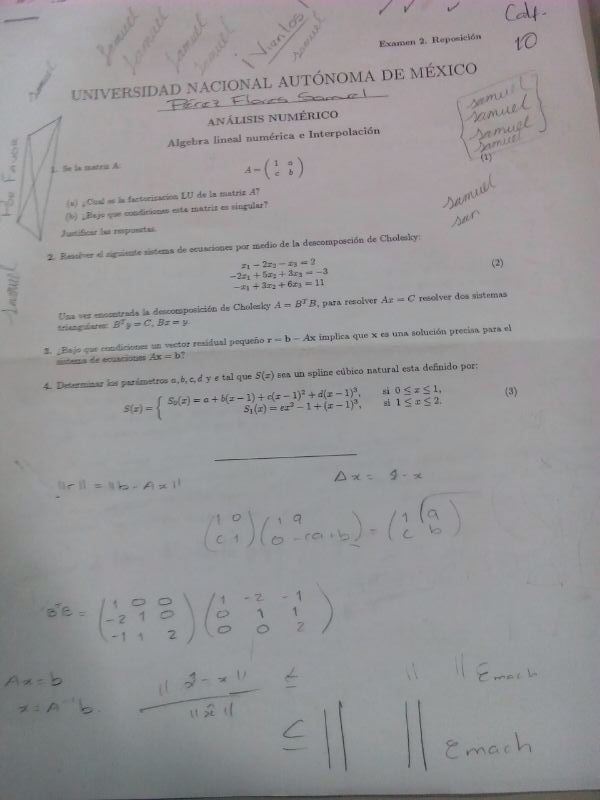 Samuel
Samuel
Samuel
Samuel
Samuel
samuel
¡Viantos!
Calf.
Examen 2. Reposición
10
UNIVERSIDAD NACIONAL AUTÓNOMA DE MÉXICO
Pérez Flores Samuel
ANÁLISIS NUMÉRICO
Algebra lineal numérica e Interpolación
samuel
samuel
samuel
samuel
Por Favor
1. Se la matriz A:
A = ( 1 a
c b )
(1)
(a) ¿Cual es la factorizacion LU de la matriz A?
(b) ¿Bajo que condiciones esta matriz es singular?
Justificar las respuestas.
samuel
sam
Samuel
2. Resolver el siguiente sistema de ecuaciones por medio de la descomposción de Cholesky:
x₁ − 2x₂ − x₃ = 2
−2x₁ + 5x₂ + 3x₃ = −3
−x₁ + 3x₂ + 6x₃ = 11
(2)
Una vez encontrada la descomposición de Cholesky A = BᵀB, para resolver Ax = C resolver dos sistemas
triangulares: Bᵀy = C, Bx = y.
3. ¿Bajo que condiciones un vector residual pequeño r = b − Ax implica que x es una solución precisa para el
sistema de ecuaciones Ax = b?
4. Determinar los parámetros a, b, c, d y e tal que S(x) sea un spline cúbico natural esta definido por:
S(x) = { S₀(x) = a + b(x − 1) + c(x − 1)² + d(x − 1)³, si 0 ≤ x ≤ 1,
S₁(x) = ex² − 1 + (x − 1)³, si 1 ≤ x ≤ 2.
(3)
||r|| = ||b - Ax||
Δx = x̂ - x
(1 0
c 1) (1 a
0 -ca+b) = (1 a
c b)
BᵀB = (1 0 0
-2 1 0
-1 1 2) (1 -2 -1
0 1 1
0 0 2)
Ax = b
x = A⁻¹b.
||x̂ - x||
||x̂||
≤ || || Emach
≤ || || Emach